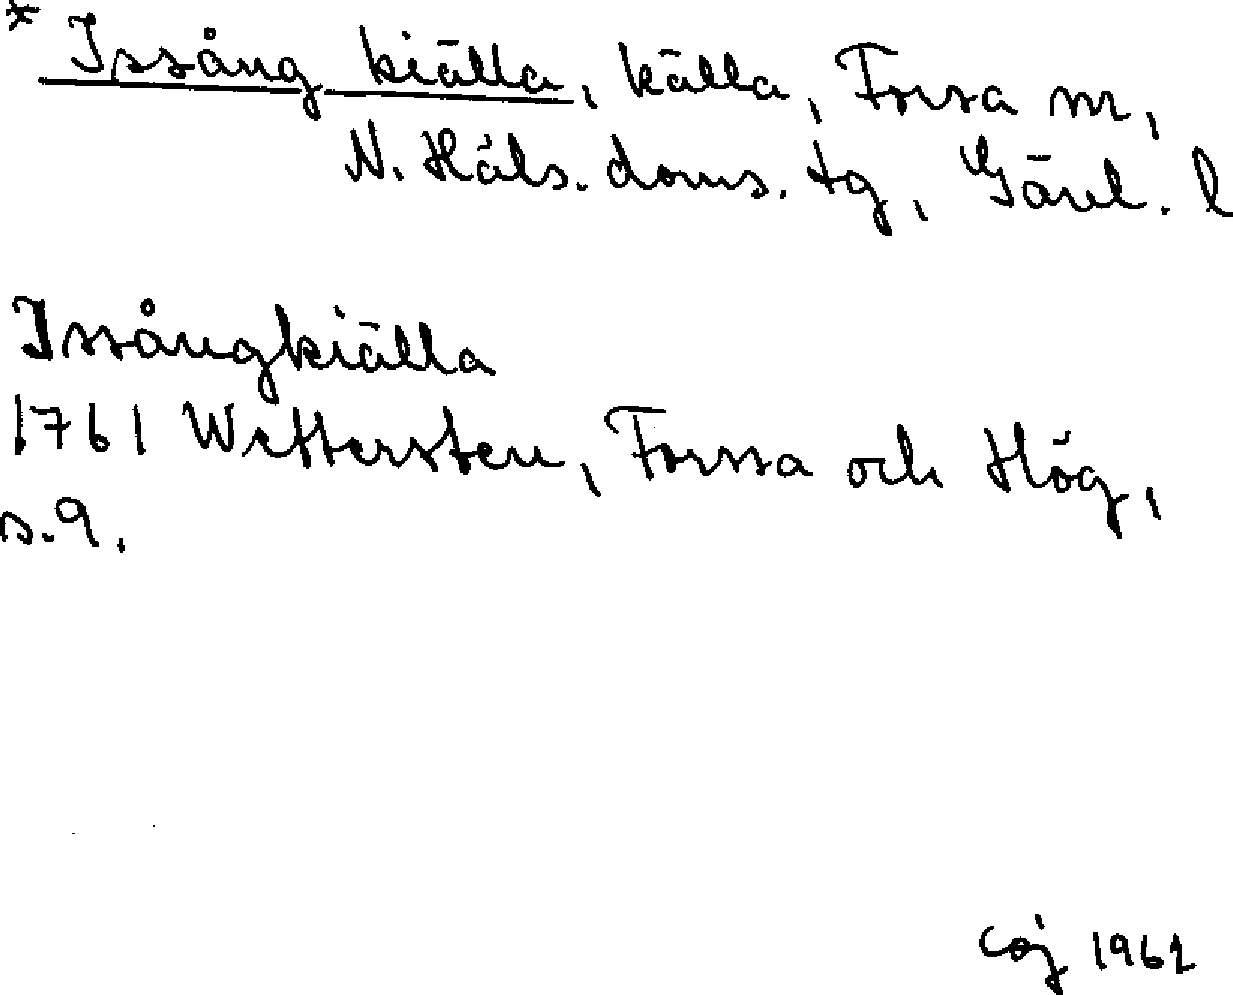 * Issång kiälla, källa, Forsa sn,
N. Häls. doms. tg, Gävl. l
Issångkiälla
1761 Wettersten, Forssa och Hög,
s. 9.
coj 1962